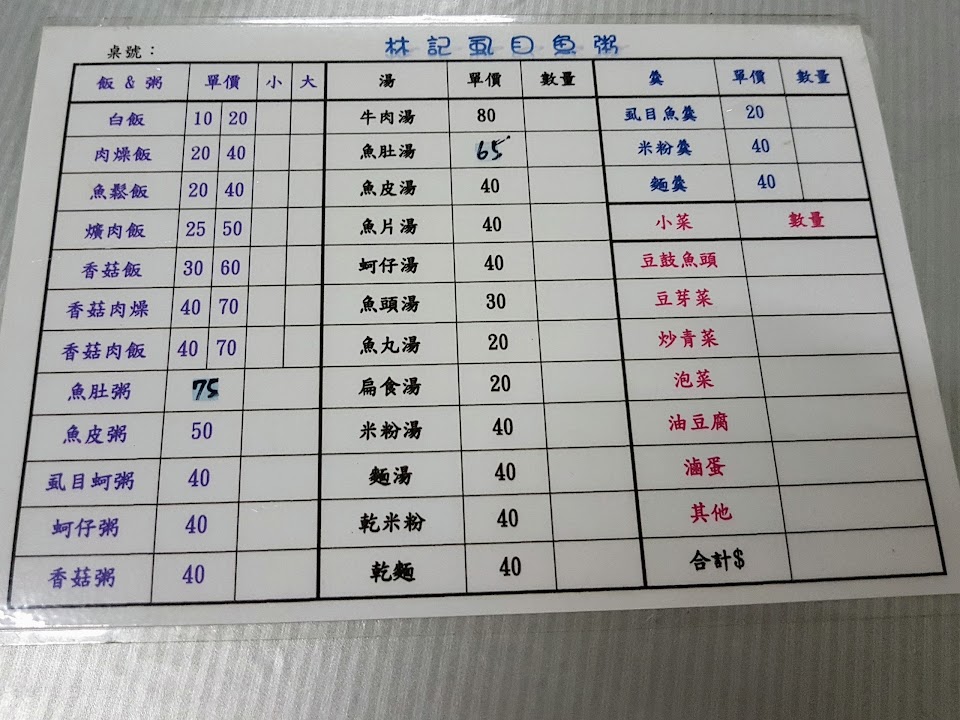 桌號： 林記虱目魚粥
飯 & 粥 單價 小 大 湯 單價 數量 羹 單價 數量
白飯 10 20 牛肉湯 80 虱目魚羹 20
肉燥飯 20 40 魚肚湯 65 米粉羹 40
魚鬆飯 20 40 魚皮湯 40 麵羹 40
爌肉飯 25 50 魚片湯 40 小菜 數量
香菇飯 30 60 蚵仔湯 40 豆鼓魚頭
香菇肉燥 40 70 魚頭湯 30 豆芽菜
香菇肉飯 40 70 魚丸湯 20 炒青菜
魚肚粥 75 扁食湯 20 泡菜
魚皮粥 50 米粉湯 40 油豆腐
虱目蚵粥 40 麵湯 40 滷蛋
蚵仔粥 40 乾米粉 40 其他
香菇粥 40 乾麵 40 合計$